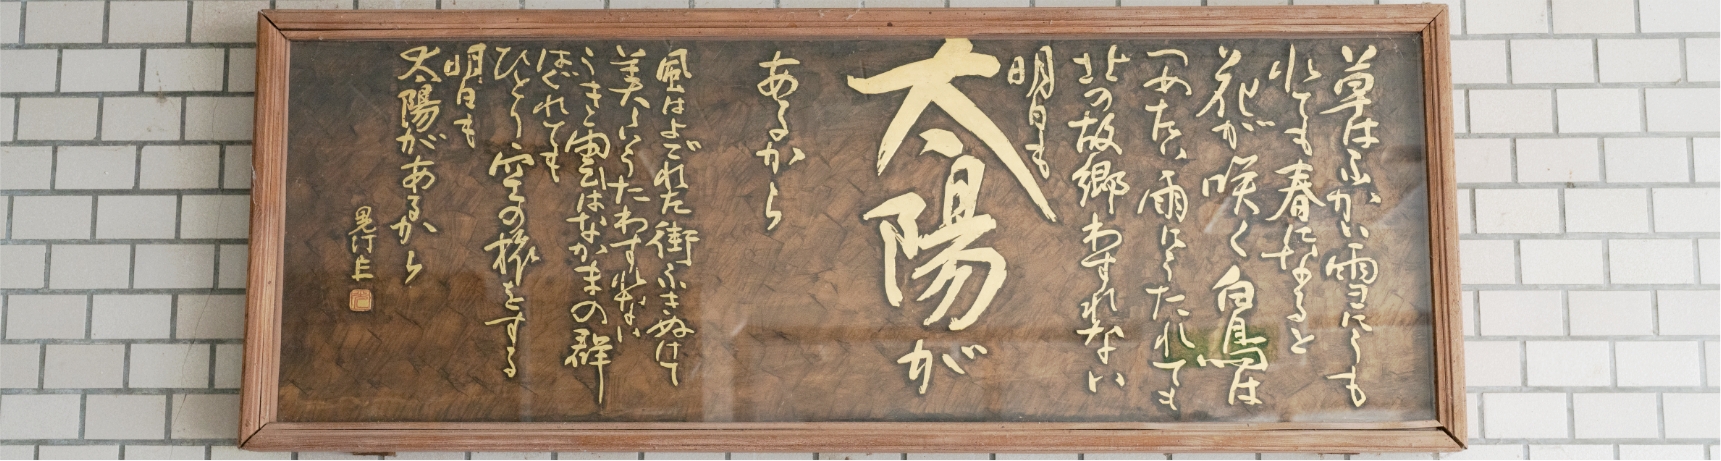 草はふかい雪にうも
れても春になると
花が咲く 白鳥は
つめたい雨にうたれても
北の故郷わすれない
明日も
太陽が
あるから
風はよごれた街ふきぬけて
美しいうたわすれない
うきぐ雲はなかまの群
はぐれても
ひとり空の旅をする
明日も
太陽があるから